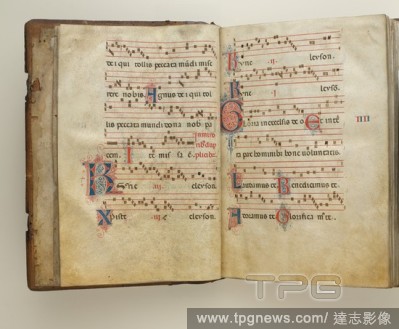 de i qui tollis peccata mūdi mise
rere nobis Agnus de i qui tol
lis peccata mundi dona nob pa
cem. 
Kyrie iii eleyson.
Xpiste iii eleyson.
Kyrie iii eleyson.
Kyrie eleysō.
Gloria in excelsis deo Et in te
rra pax hominibus bone voluntatis
Laudamus te. Benedicimus te.
Adoramus te Glorifica mᵘ te.
IIII
TPG
www.tpgnews.com/達志影像